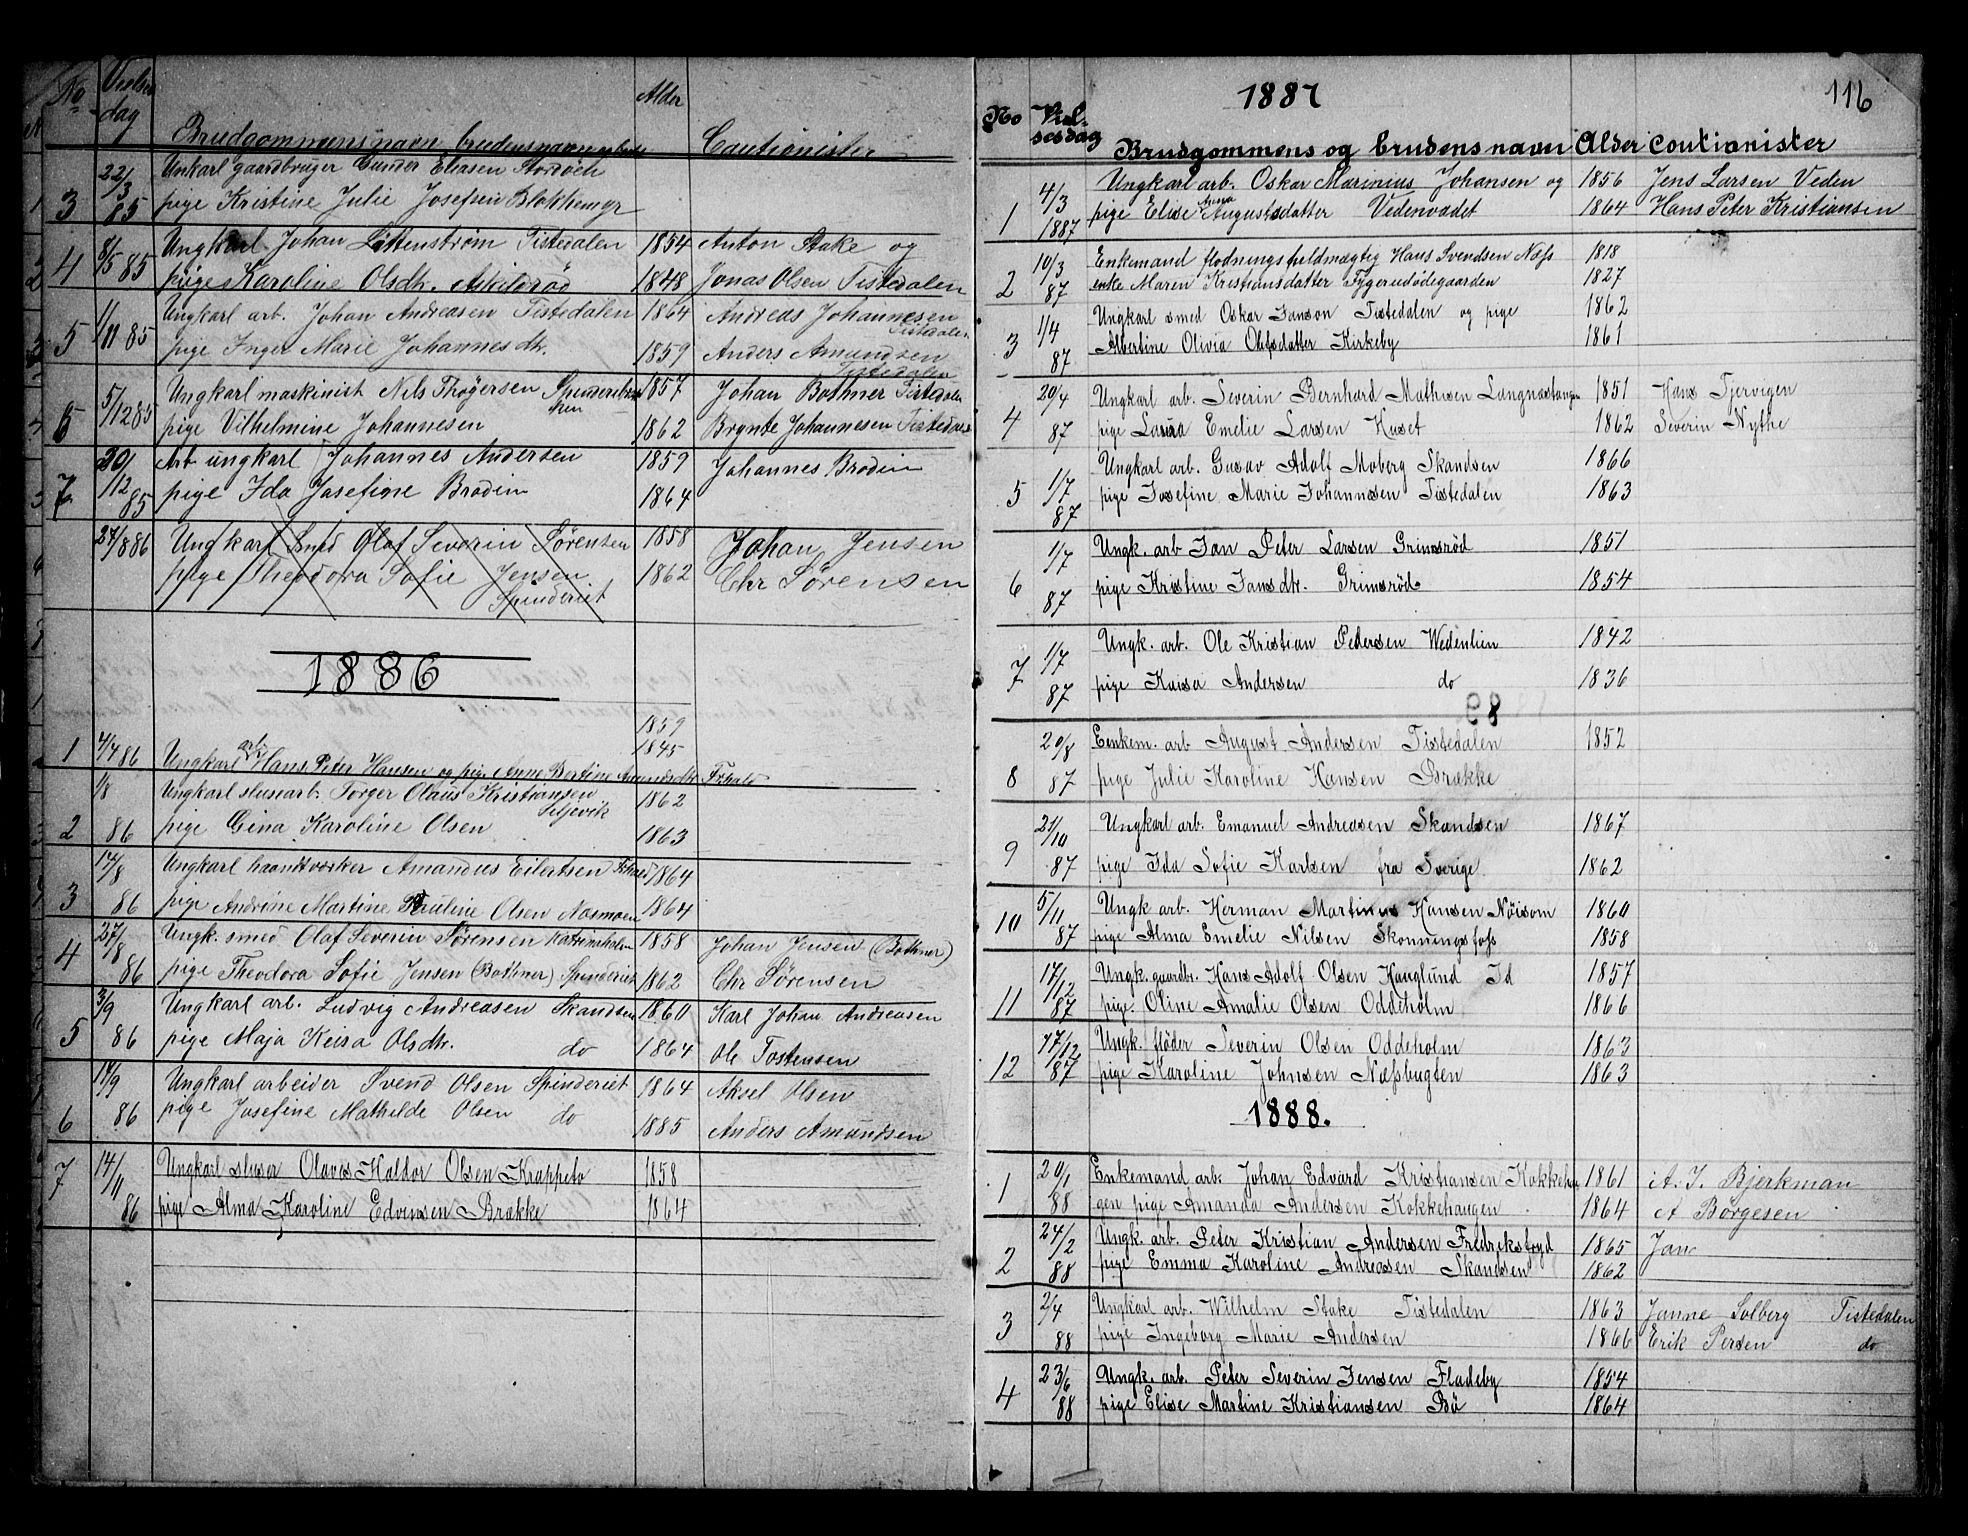 No Vielses dag Brudgommens navn, brudens navn Alder Cautionister
3 22/3 85 Unkarl gaardbruger Gunder Eliasen Stordöch
pige Kristine Julie Josefsen Blokkemyr
4 8/5 85 Ungkarl Johan Littenstrøm Tistedalen 1854 Anton Stake og
pige Karoline Olsdtr. Askilsrød 1848 Jonas Olsen Tistedalen
5 1/11 85 Ungkarl arb. Johan Andreasen Tistedalen 1864 Andreas Johannesen Tistedalen
pige Inger Marie Johannesdtr. 1859 Anders Amundsen Tistedalen
6 5/12 85 Ungkarl maskinist Nils Thøgersen 1857 Johan Bothner Tistedalen
pige Vilhelmine Johannesen 1862 Brynte Johannesen Tistedalen
7 20/12 85 Arb ungkarl Johannes Andersen 1859 Johannes Brodin
pige Ida Josefine Brodin 1864
27/8 86 Ungkarl Smed Olaf Severin Sørensen 1858 Johan Jensen
pige Theodora Sofie Jensen 1862 Chr Sørensen
Spinderiet
1886
1859
1 4/4 86 Ungkarl arb. Hans Peter Hansen og pige Anne Bertine Amundsdtr 1845
2 1/8 86 Ungkarl slusarb. Torger Olaus Kristiansen 1862
Siljevik
pige Gina Karoline Olsen 1863
3 14/8 86 Ungkarl haandtværker Amandus Eilertsen 1864
pige Andrine Martine Pauline Olsen Næsmoen 1864
4 27/8 86 Ungk. smed Olaf Severin Sørensen Katrineholm 1858 Johan Jensen (Bothner)
pige Theodora Sofie Jensen (Bothner) Spinderiet 1862 Chr Sørensen
5 3/9 86 Ungkarl arb. Ludvig Andreasen Skandsen 1860 Karl Johan Andreasen
pige Maja Keisa Olsdtr. do 1864 Ole Tostensen
6 14/9 86 Ungkarl arbeider Svend Olsen Spinderiet 1864 Aksel Olsen
pige Josefine Mathilde Olsen do 1885 Anders Amundsen
7 14/11 86 Ungkarl sluser Olaves Haldor Olsen Krappeto 1858
pige Alma Karoline Edvensen Brække 1864
1887 116
No Viel-sesdag Brudgommens og brudens navn Alder coutionister
1 4/3 1887 Ungkarl arb. Oskar Marinius Johansen og 1856 Jens Larsen Veden
pige Elise Anna Augustsdatter Vedenvadet 1864 Hans Peter Kristiansen
2 10/3 87 Enkemand flødningsfuldmægtig Hans Svendsen Næss 1818
enke Maren Kristiansdatter Fygerudödegaarden 1827
3 1/4 87 Ungkarl smed Oskar Janson Tistedalen og pige 1862
Albertine Olivia Olefsdatter Kirkeby 1861
4 20/4 87 Ungkarl arb. Severin Bernhard Mathisen Langnæstangen 1851 Hans Tjervigen
pige Laura Emelie Larsen Huset 1862 Severin Nythe
5 1/7 87 Ungkarl arb. Gusav Adolf Moberg Skandsen 1866
pige Josefine Marie Johannsen Tistedalen 1863
6 1/7 87 Ungk. arb Jan Peter Larsen Grimsrød 1851
pige Kristine Jansdtr. Grimsrød 1854
7 1/7 87 Ungk. arb. Ole Kristian Pedersen Wedenlien 1842
pige Kaisa Andersen do 1836
8 20/8 87 Eenkem. arb August Andersen Tistedalen 1852
pige Julie Karoline Hansen Brække
9 21/10 87 Ungkarl arb. Emanuel Andreasen Skandsen 1867
pige Ida Sofie Karlsen fra Sverige 1862
10 5/11 87 Ungk arb. Herman Martinus Hansen Nöisom 1860
pige Alma Emelie Nilsen Skonningsfoss 1858
11 17/12 87 Ungk. gaardbr. Hans Adolf Olsen Hauglund Id 1857
pige. Oline Amalie Olsen Oddeholm 1866
12 17/12 87 Ungk. fløder Severin Olsen Oddeholm 1863
pige Karoline Johnsen Næssbugten 1863
1888.
1 20/1 88 Enkemand arb. Johan Edvard Kristiansen Kokkehau 1861 A. J. Bjerkman
gen pige Amanda Andersen Kokkehaugen 1864 A Börgesen
2 24/2 88 Ungk. arb. Peter Kristian Andersen Fredriksfryd 1865 Jan
pige Emma Karoline Andreasen Skandsen 1862
3 2/4 88 Ungkarl arb. Wilhelm Stake Tistedalen 1863 Janne Solberg Tistedalen
pige Ingeborg Marie Andersen 1866 Erik Persen do
4 23/6 88 Ungk. arb. Peter Severin Jensen Fladeby 1854
pige Elise Martine Kristiansen Bö 1864